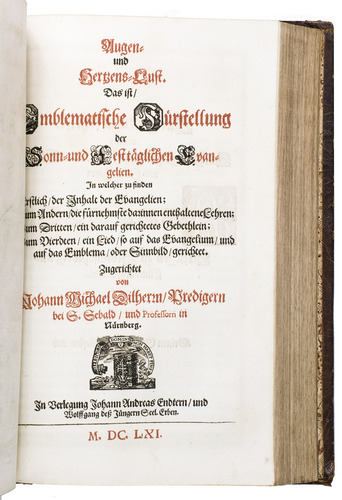 Augen-
und
Hertzens-Lust.
Das ist/
Emblematische Fürstellung
der
Sonn- und Festtäglichen Evan-
gelien.
In welcher zu finden
Erstlich/ der Inhalt der Evangelien:
Zum Andern/ die fürnehmste darinnen enthaltene Lehren:
Zum Dritten/ ein darauf gerichtetes Gebethlein:
Zum Vierdten/ ein Lied/ so auf das Evangelium/ und
auf das Emblema/ oder Sinnbild/ gerichtet.
Zugerichtet
von
Johann Michael Dilherrn/ Predigern
bei S. Sebald/ und Professorn in
Nürnberg.
In Verlegung Johann Andreas Endtern/ und
Wolffgang deß Jüngern Seel. Erben.
M. DC. LXI.